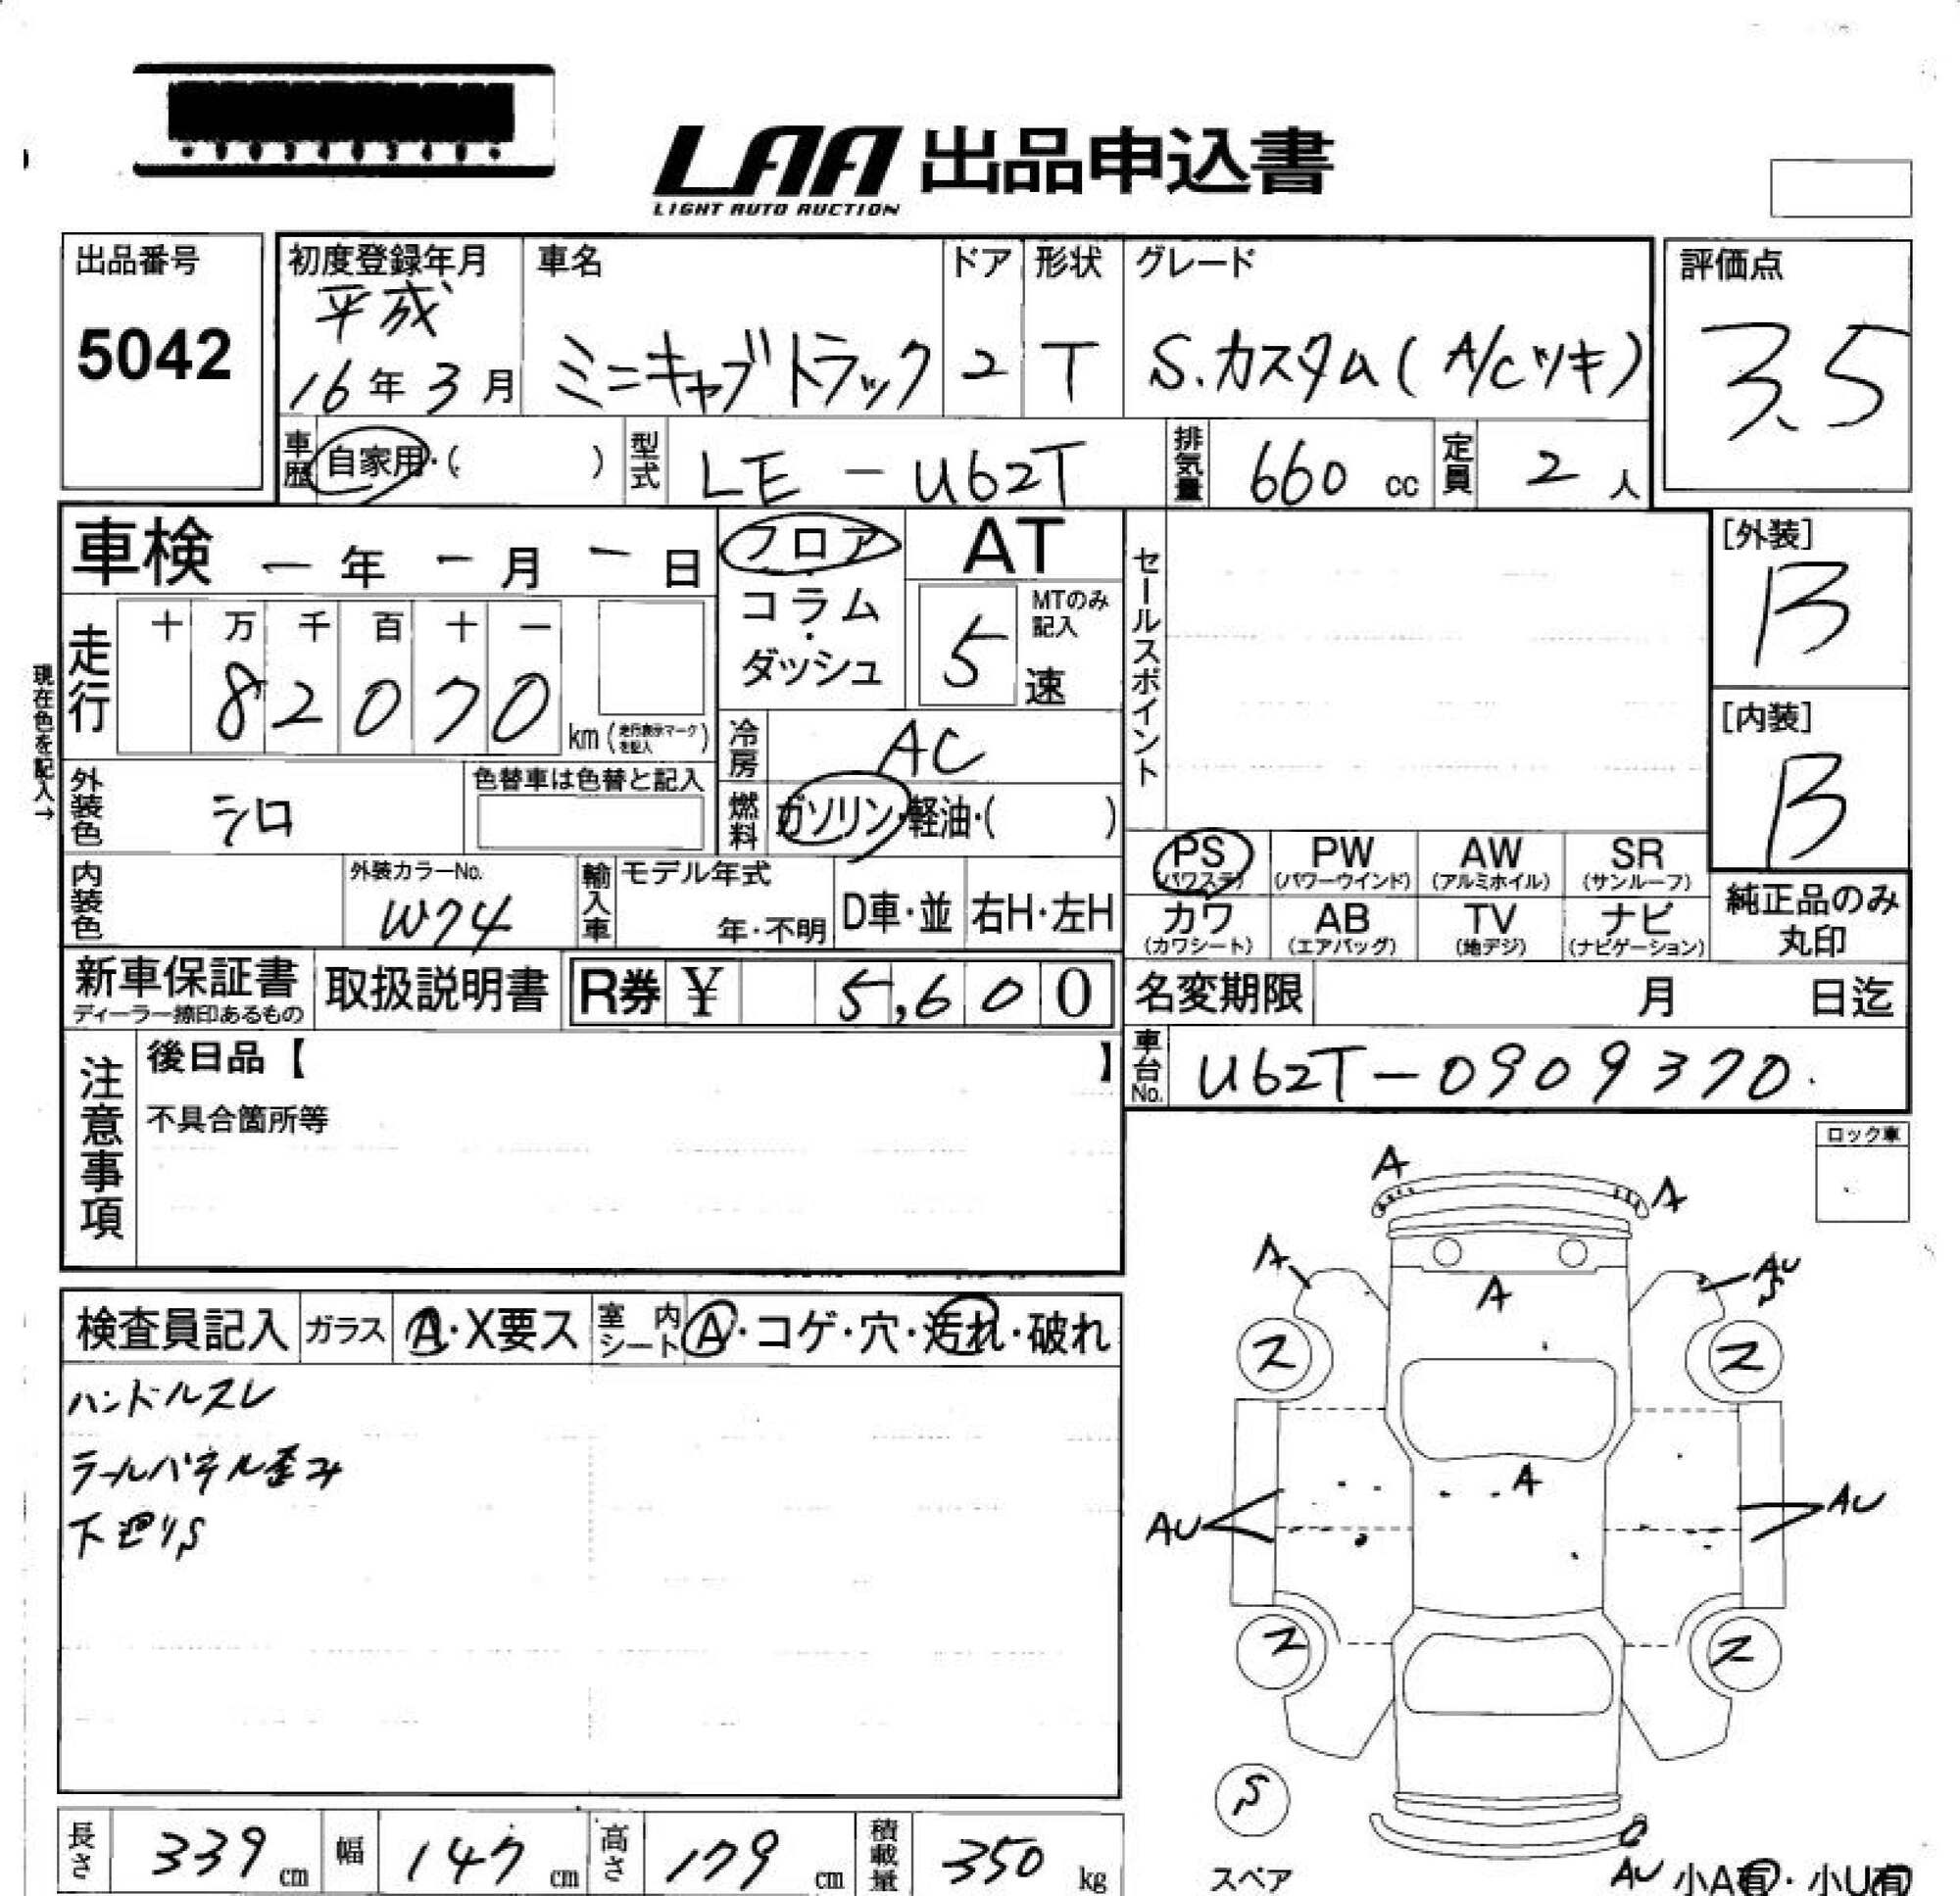 LAA 出品申込書
LIGHT AUTO AUCTION
出品番号
5042
初度登録年月
平成
16年3月
車名
ミニキャブトラック
ドア
2
形状
T
グレード
S.カスタム(A/Cツキ)
評価点
3.5
車歴
自家用・( )
型式
LE-U62T
排気量
660 cc
定員
2 人
車検 ー年 ー月 ー日
走行
十 万 千 百 十 一
82070
km (走行表示マークを記入)
現在色を記入→
フロア・コラム・ダッシュ
AT
5速
MTのみ記入
冷房
AC
燃料
ガソリン・軽油・( )
セールスポイント
[外装]
B
[内装]
B
外装色
シロ
色替車は色替と記入
内装色
外装カラーNo.
W74
輸入車
モデル年式
年・不明
D車・並
右H・左H
PS
(パワステ)
PW
(パワーウインド)
AW
(アルミホイル)
SR
(サンルーフ)
カワ
(カワシート)
AB
(エアバッグ)
TV
(地デジ)
ナビ
(ナビゲーション)
純正品のみ
丸印
新車保証書
ディーラー捺印あるもの
取扱説明書
R券 ¥ 5,600
名変期限 月 日迄
車台No.
U62T-0909370.
注意事項
後日品【 】
不具合箇所等
ロック車
検査員記入
ガラス
A・X要ス
室内シート
A・コゲ・穴・汚れ・破れ
ハンドルスレ
テールパネル歪み
下廻りS
A
A
A
AU
S
A
2
2
A
AU
AU
2
2
S
スペア
AU
小A有・小U有
長さ
339 cm
幅
147 cm
高さ
179 cm
積載量
350 kg